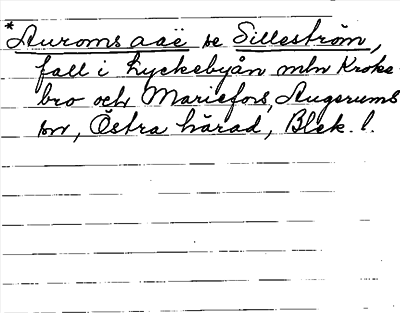 *Auroms aaë se Silleström,
fall i Lyckebyån mln Kroks-
bro och Mariefors, Augerums
sn, Östra härad, Blek. l.